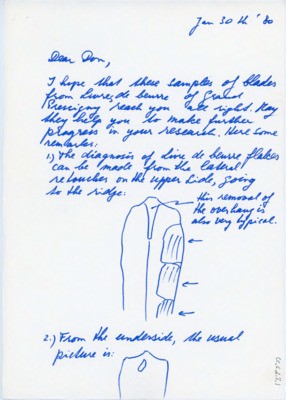 Jan 30th '80
Dear Don,
I hope that these samples of blades
from Livres de beurre of Grand
Pressigny reach you all right. May
they help you to make further
progress in your research. Here some
remarks:
1.) The diagnosis of livre de beurre flakes
can be made from the lateral
retouches on the upper side, going
to the ridge:
this removal of
the overhang is
also very typical.
2.) From the underside, the usual
picture is: